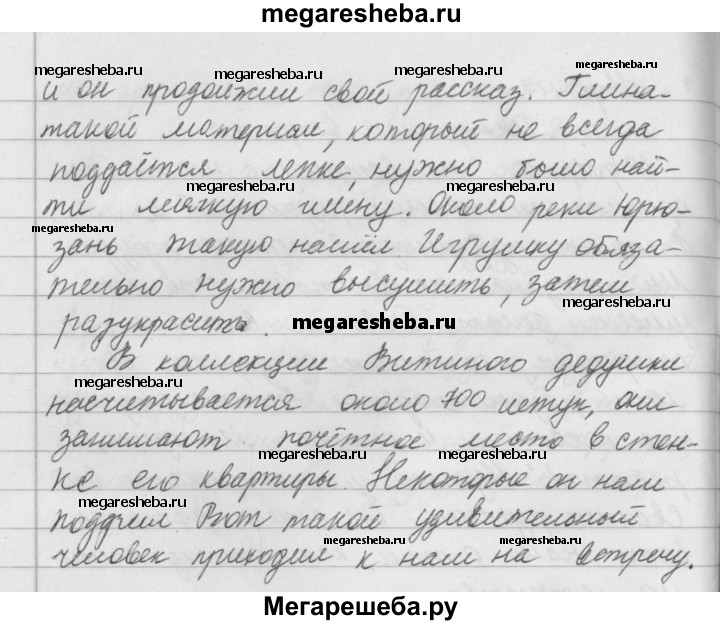 megaresheba.ru
megaresheba.ru megaresheba.ru megaresheba.ru megaresheba.ru
и он продолжил свой рассказ. Глина-
такой материал, который не всегда
поддаётся лепке, нужно было най-
megaresheba.ru megaresheba.ru
ти мягкую глину. Около реки Юрю-
megaresheba.ru
зань такую нашёл Игрушку обяза-
тельно нужно высушить, затем
megaresheba.ru
разукрасить.
megaresheba.ru
В коллекции Витиного дедушки
megaresheba.ru
насчитывается около 700 штук, они
занимают почётное место в стен-
megaresheba.ru megaresheba.ru megaresheba.ru
ке его квартиры. Некоторые он нам
megaresheba.ru
подарил. Вот такой удивительный
megaresheba.ru megaresheba.ru
человек приходил к нам на встречу.
megaresheba.ru megaresheba.ru
Мегарешеба.ру